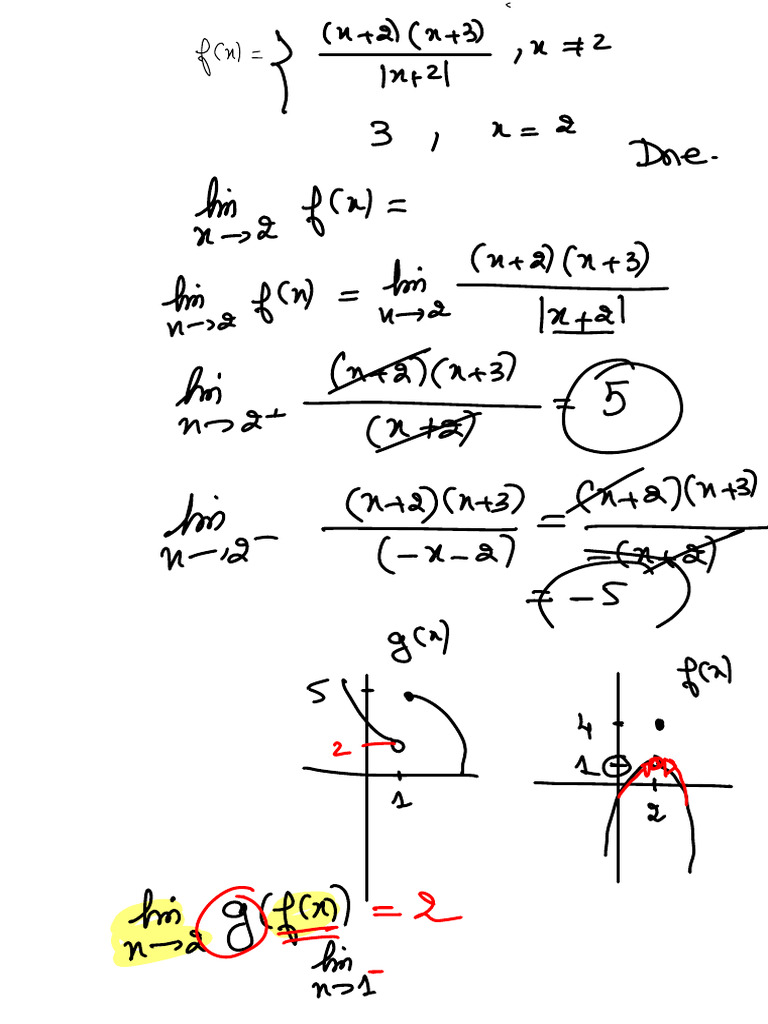 f(x) = { (x+2)(x+3) / |x+2| , x ≠ 2
3 , x = 2
Done.
lim x→2 f(x) =
lim x→2 f(x) = lim x→2 (x+2)(x+3) / |x+2|
lim x→2+ (x+2)(x+3) / (x+2) = 5
lim x→2- (x+2)(x+3) / (-x-2) = (x+2)(x+3) / -(x+2)
= -5
g(x)
5
2
1
f(x)
4
1
2
lim x→2 g(f(x)) = 2
lim x→1-